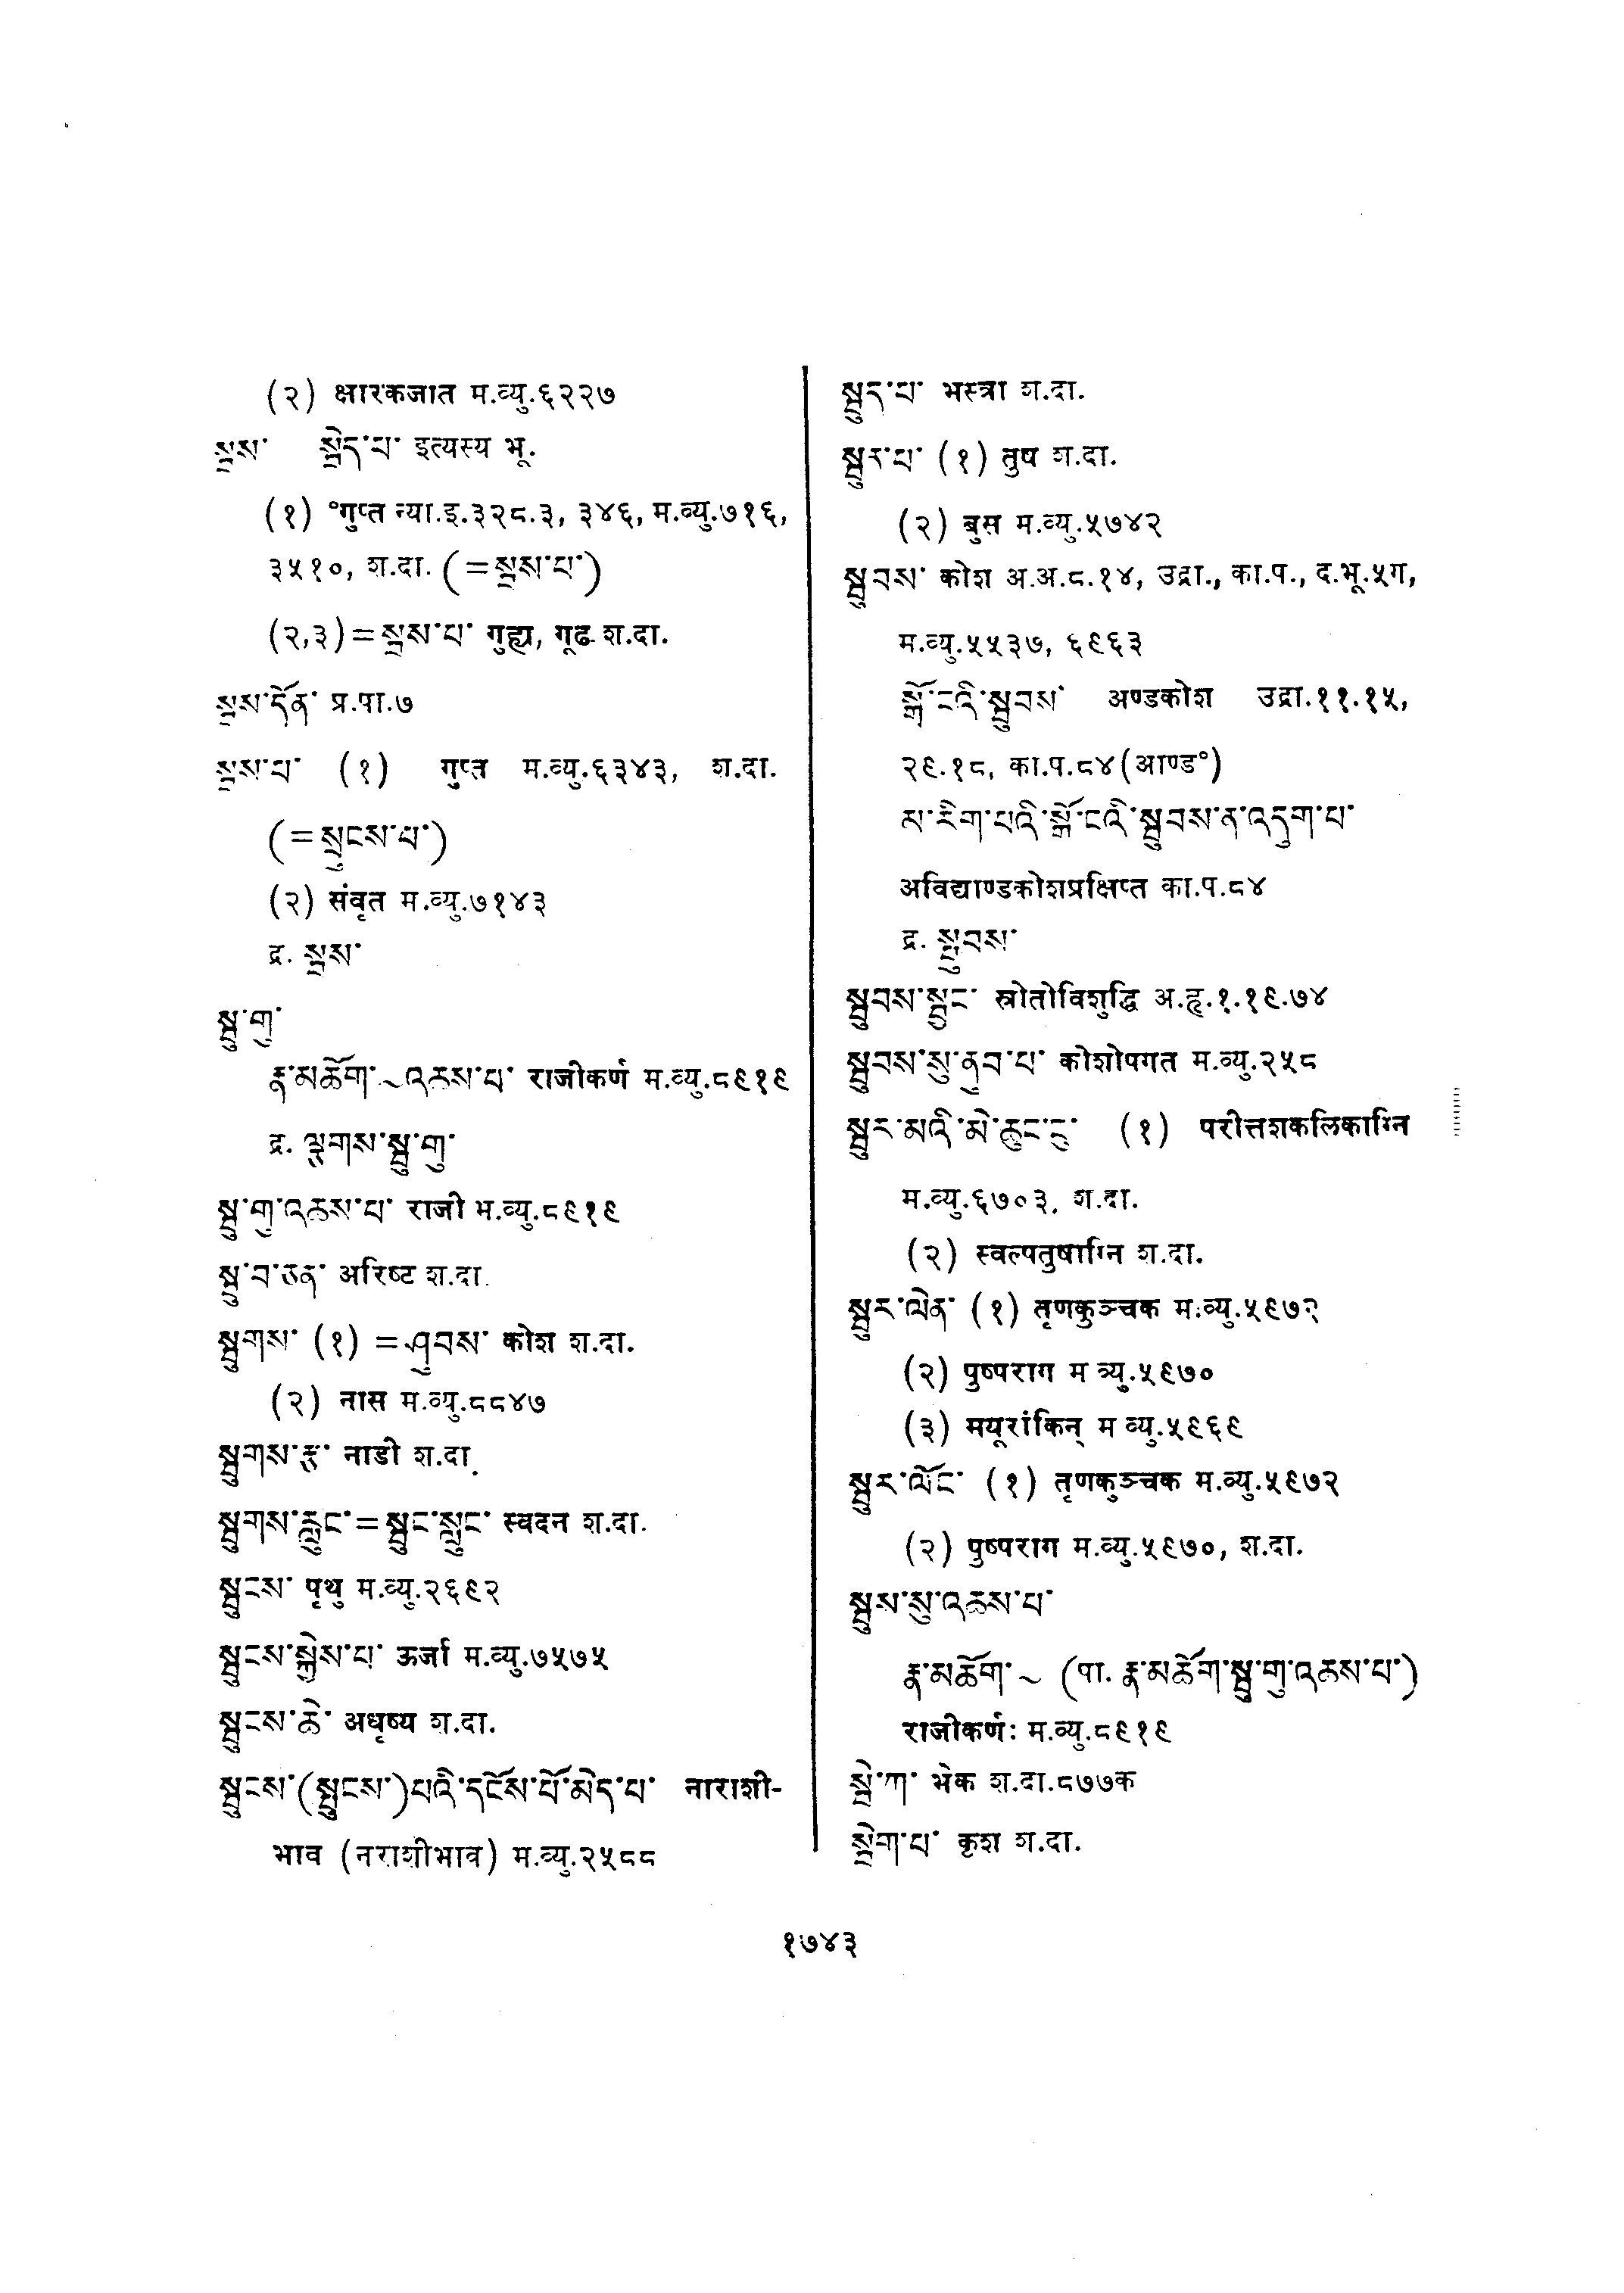 (२) क्षारकजात म.व्यु.६२२७
སྦས་ སྦེད་པ་ इत्यस्य भू.
(१) °गुप्त न्या.इ.३२८.३, ३४६, म.व्यु.७१६,
३५१०, श.दा. (=སྦས་པ་)
(२,३)=སྦས་པ་ गुह्य, गूढ श.दा.
སྦས་དོན་ प्र.पा.७
སྦས་པ་ (१) गुप्त म.व्यु.६३४३, श.दा.
(=སྲུངས་པ་)
(२) संवृत म.व्यु.७१४३
द्र. སྦས་
སྦུ་གུ་
རྣ་མཆོག་~འཆས་པ་ राजीकर्ण म.व्यु.८९१९
द्र. ལྕུགས་སྦུ་གུ་
སྦུ་གུ་འཆས་པ་ राजी म.व्यु.८९१९
སྦུ་བ་ཅན་ अरिष्ट श.दा.
སྦུགས་ (१) =ཤུབས་ कोश श.दा.
(२) नास म.व्यु.८८४७
སྦུགས་རྩ་ नाडी श.दा.
སྦུགས་རླུང་=སྦུང་སླུང་ स्वदन श.दा.
སྦུངས་ पृथु म.व्यु.२६९२
སྦུངས་སྐྱེས་པ་ ऊर्जा म.व्यु.७५७५
སྦུངས་ཆེ་ अधृष्य श.दा.
སྦུངས་(སྤུངས་)པའི་དངོས་པོ་མེད་པ་ नाराशी-
भाव (नराशीभाव) म.व्यु.२५८८
སྦུད་པ་ भस्त्रा श.दा.
སྦུར་པ་ (१) तुष श.दा.
(२) बुस म.व्यु.५७४२
སྦུབས་ कोश अ.अ.८.१४, उद्रा., का.प., द.भू.५ग,
म.व्यु.५५३७, ६९६३
སྒོ་ངའི་སྦུབས་ अण्डकोश उद्रा.११.१५,
२९.१८, का.प.८४(आण्ड°)
མ་རིག་པའི་སྒོ་ངའི་སྦུབས་ན་འདུག་པ་
अविद्याण्डकोशप्रक्षिप्त का.प.८४
द्र. སྤུབས་
སྦུབས་སྦྱང་ स्रोतोविशुद्धि अ.हृ.१.१९.७४
སྦུབས་སུ་ནུབ་པ་ कोशोपगत म.व्यु.२५८
སྦུར་མའི་མེ་ཆུང་ངུ་ (१) परीत्तशकलिकाग्नि
म.व्यु.६७०३, श.दा.
(२) स्वल्पतुषाग्नि श.दा.
སྦུར་ལེན་ (१) तृणकुञ्चक म.व्यु.५९७२
(२) पुष्पराग म व्यु.५९७०
(३) मयूरांकिन् म व्यु.५९६९
སྦུར་ལོང་ (१) तृणकुञ्चक म.व्यु.५९७२
(२) पुष्पराग म.व्यु.५९७०, श.दा.
སྦུས་སུ་འཆས་པ་
རྣ་མཆོག་~ (पा. རྣ་མཆོག་སྦུ་གུ་འཆས་པ་)
राजीकर्णः म.व्यु.८९१९
སྦེ་ཀ་ भेक श.दा.८७७क
སྦེག་པ་ कृश श.दा.
१७४३